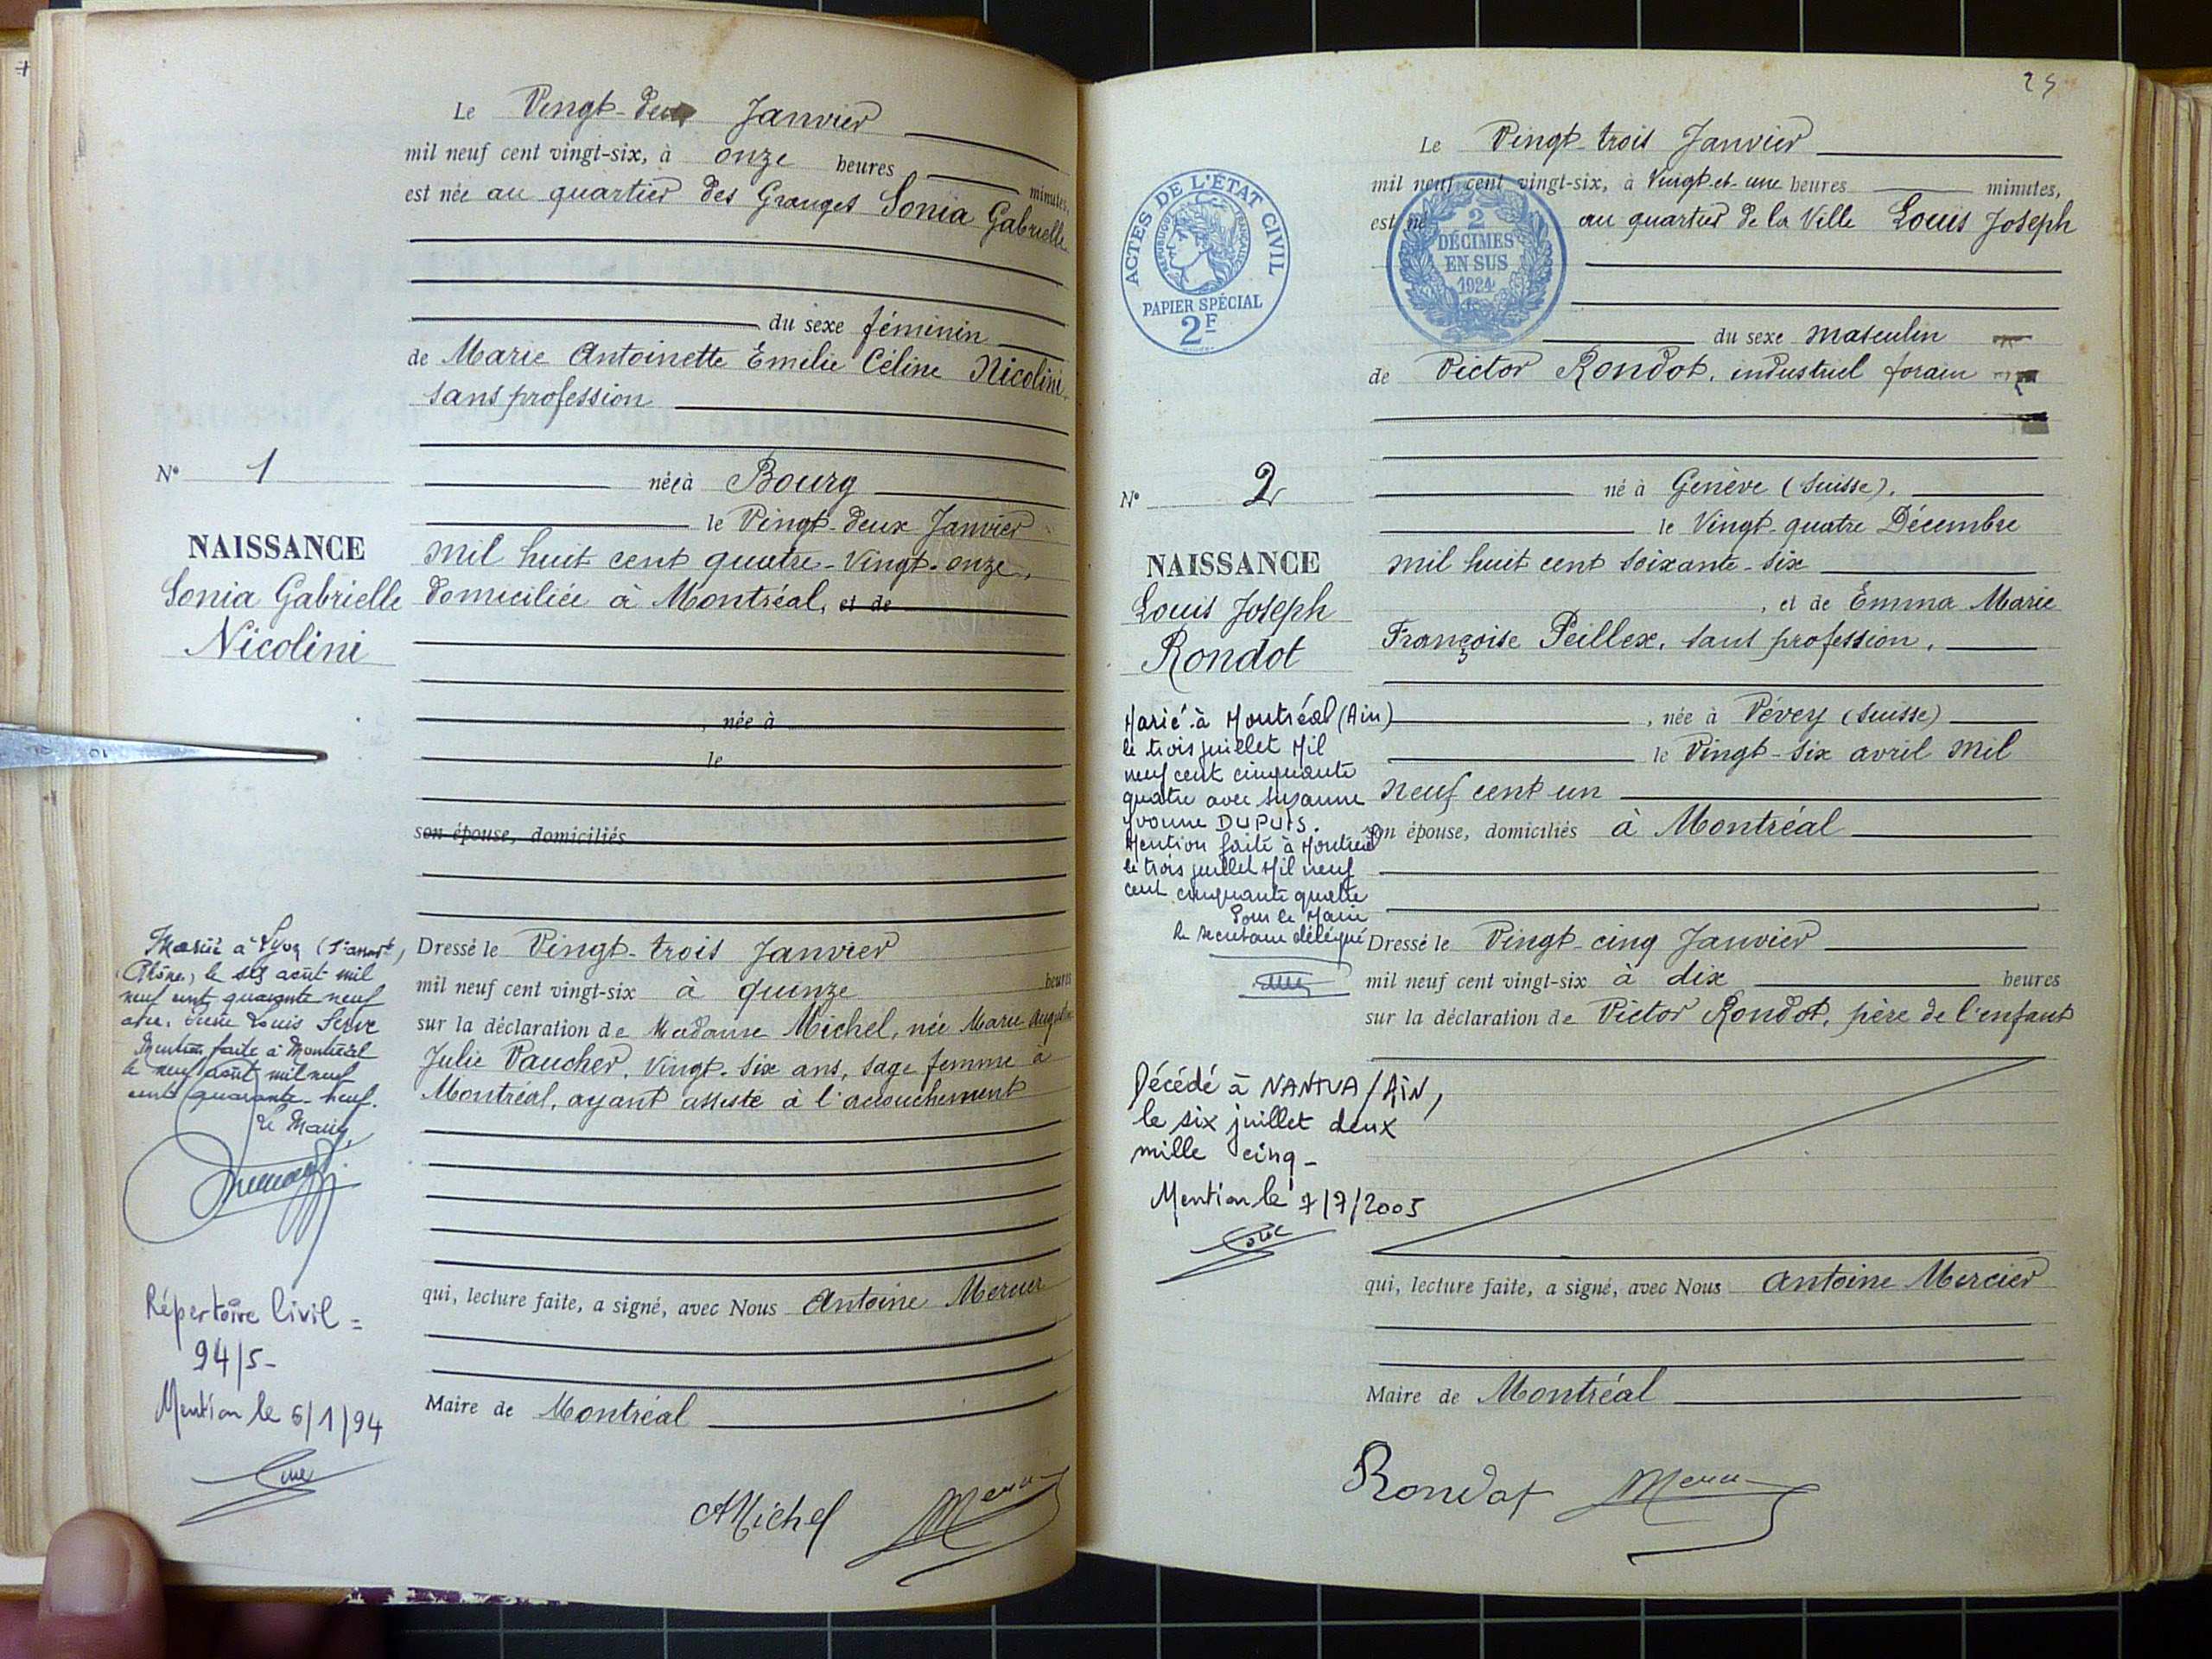 Le Vingt-deux Janvier
mil neuf cent vingt-six, à onze heures minutes,
est née au quartier des Granges Sonia Gabrielle
du sexe féminin
de Marie Antoinette Emélie Céline Nicolini
sans profession
née à Bourg
le Vingt-deux Janvier
mil huit cent quatre-vingt-onze,
domiciliée à Montréal, et de
, née à
le
son épouse, domiciliés
Dressé le Vingt-trois Janvier
mil neuf cent vingt-six à quinze heures
sur la déclaration de Madame Michel, née Marie
Julie Vaucher, vingt-six ans, sage femme à
Montréal, ayant assisté à l'accouchement
qui, lecture faite, a signé, avec Nous Antoine Mercier
Maire de Montréal
Michel
N° 1
NAISSANCE
Sonia Gabrielle
Nicolini
Mariée à Lyon
(Rhône) le six août mil
neuf cent quarante neuf
avec Louis Serve
Mention faite à Montréal
le neuf août mil neuf
cent quarante-neuf.
Le Maire,
Répertoire Civil =
94/5-
Mention le 6/1/94
25
ACTES DE L'ÉTAT CIVIL
RÉPUBLIQUE FRANÇAISE
PAPIER SPÉCIAL
2F
2
DÉCIMES
EN SUS
1924
Le Vingt-trois Janvier
mil neuf cent vingt-six, à Vingt-et-une heures minutes,
est né au quartier de la Ville Louis Joseph
du sexe masculin
de Victor Rondot, industriel forain
né à Genève (Suisse).
le Vingt-quatre Décembre
mil huit cent soixante-six
, et de Emma Marie
Françoise Peillex, sans profession,
, née à Vévey (Suisse)
le Vingt-six avril mil
neuf cent un
son épouse, domiciliés à Montréal
Dressé le Vingt-cinq Janvier
mil neuf cent vingt-six à dix heures
sur la déclaration de Victor Rondot, père de l'enfant
qui, lecture faite, a signé, avec Nous Antoine Mercier
Maire de Montréal
Rondot
N° 2
NAISSANCE
Louis Joseph
Rondot
Marié à Montréal (Ain)
le trois juillet Mil
neuf cent cinquante
quatre avec Suzanne
Yvonne DUPUIS.
Mention faite à Montréal
le trois juillet Mil neuf
cent cinquante quatre
Pour le Maire
le secrétaire délégué
Décédé à NANTUA/AIN,
le six juillet deux
mille cinq-
Mention le 7/7/2005